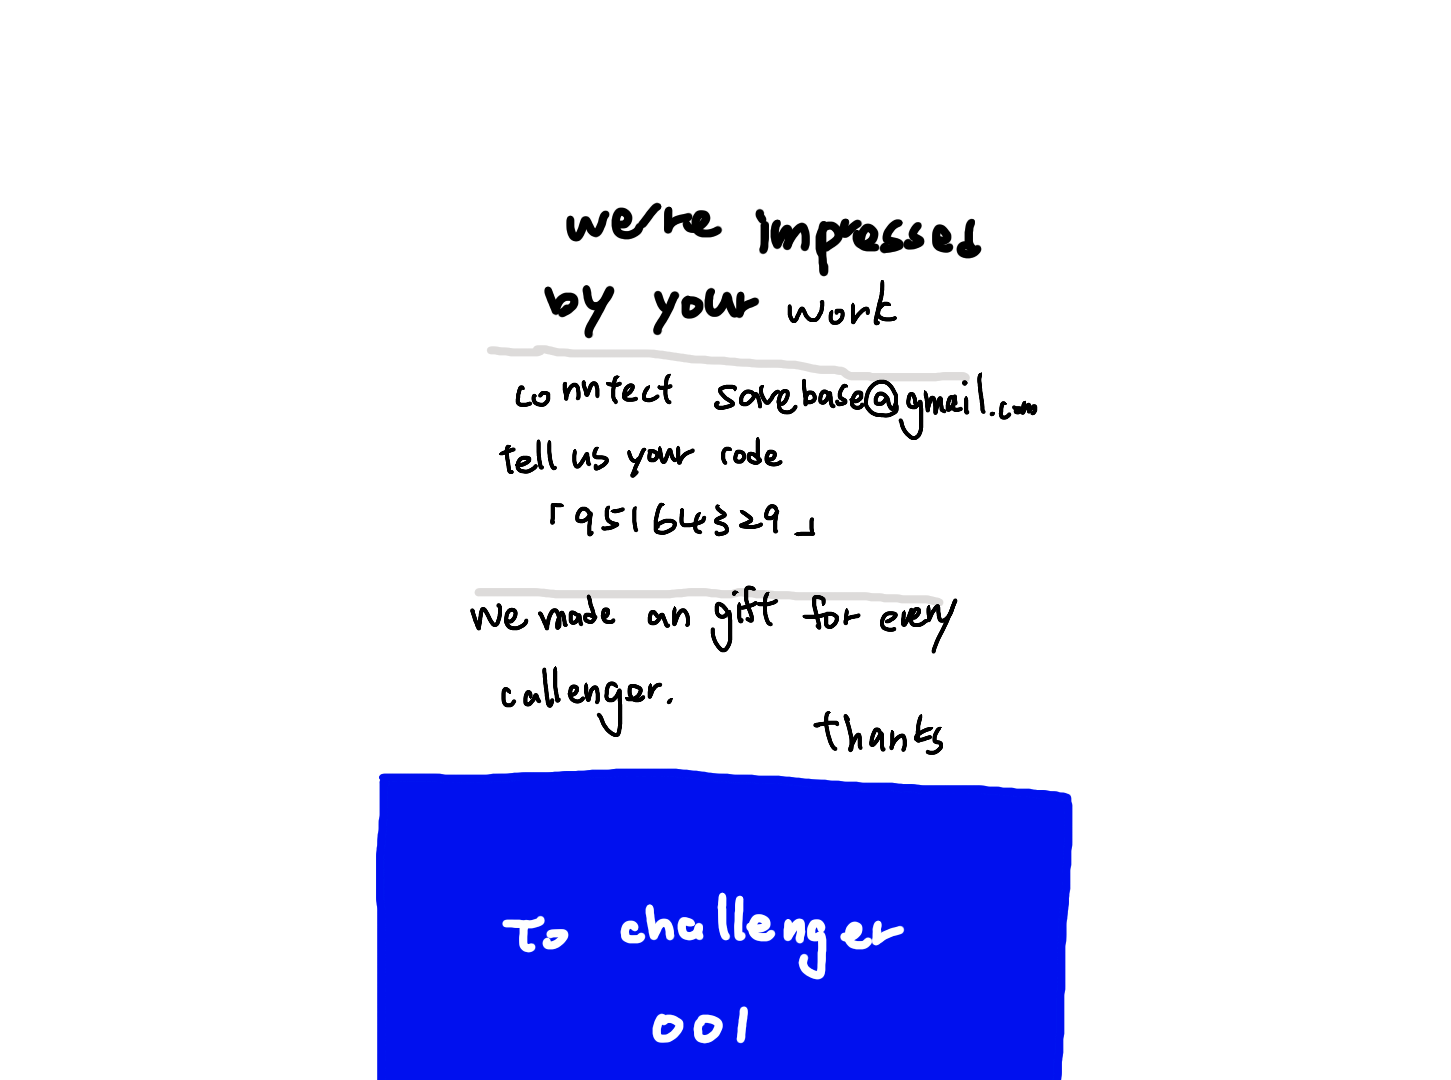 we're impressed
by your work
conntect savebase@gmail.com
tell us your code
「95164329」
we made an gift for every
callenger.
thanks
To challenger
001